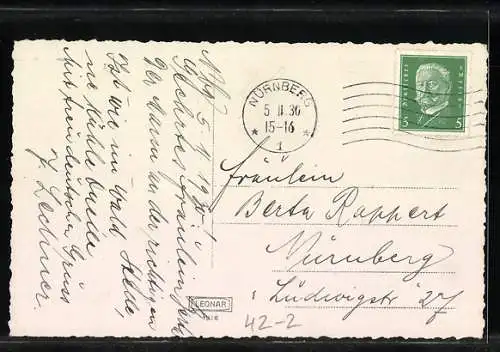 Nbg 5. II 1930!
Geehrtes Fräulein
Der Mann an der richtigen
Ist wie im Wald, Halde,
ne kühle Quelle
Mit freudeutschem Gruss
J. Lechner.
NÜRNBERG
5.II.30
15-16
* 1 *
DEUTSCHES REICH
5 5
Fräulein
Berta Rappert
Nürnberg
Ludwigstr 27
LEONAR
42-2